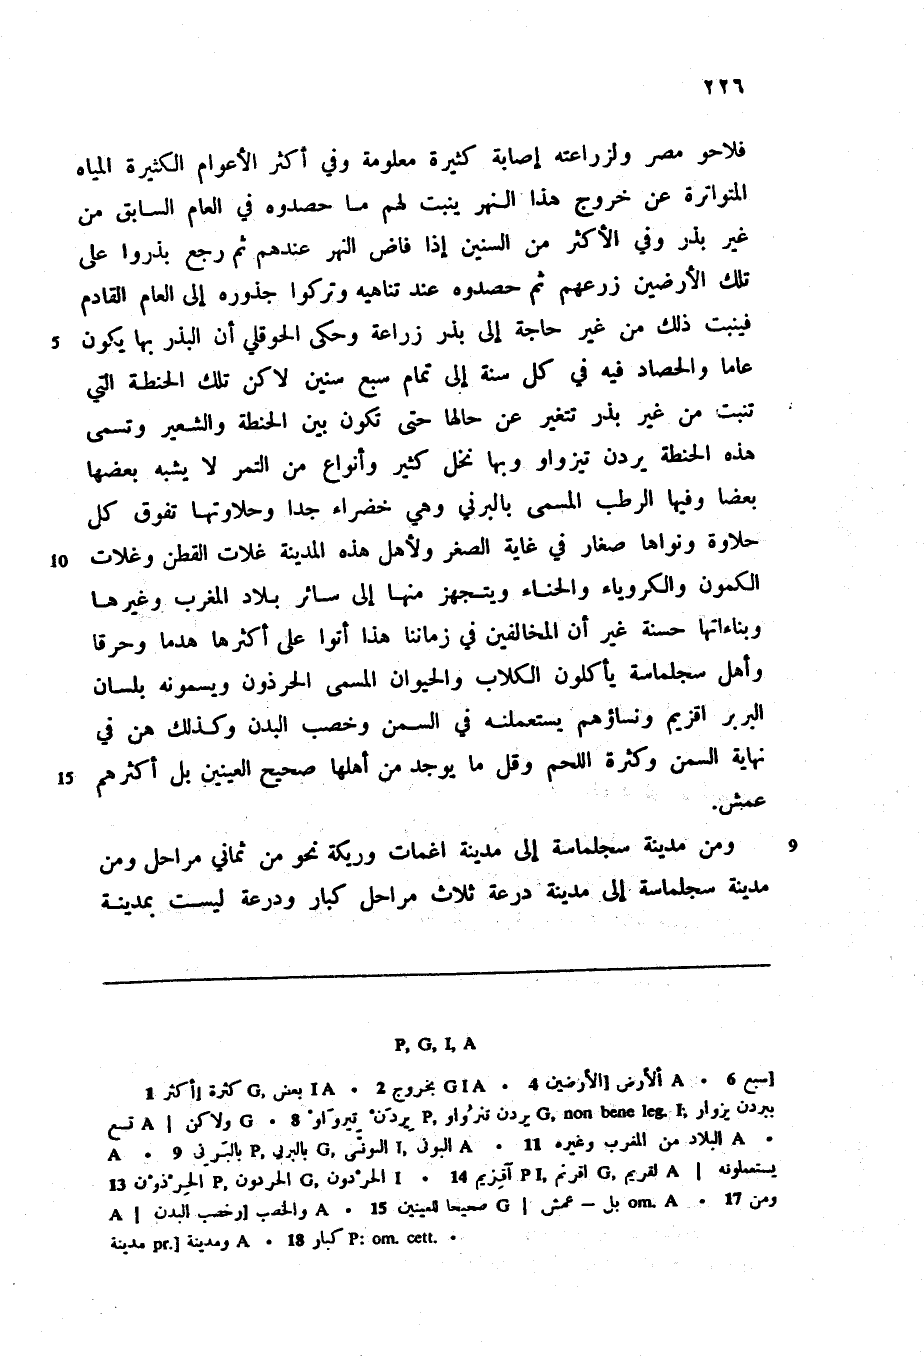 ٢٢٦
فلاحو مصر ولزراعته إصابة كثيرة معلومة وفي أكثر الأعوام الكثيرة المياه
المتواترة عن خروج هذا النهر ينبت لهم ما حصدوه في العام السابق من
غير بذر وفي الأكثر من السنين إذا فاض النهر عندهم ثم رجع بذروا على
تلك الأرضين زرعهم ثم حصدوه عند تناهيه وتركوا جذوره إلى العام القادم
فينبت ذلك من غير حاجة إلى بذر زراعة وحكى الحوقلي أن البذر بها يكون 5
عاما والحصاد فيه في كل سنة إلى تمام سبع سنين لاكن تلك الحنطة التي
تنبت من غير بذر تتغير عن حالها حتى تكون بين الحنطة والشعير وتسمى
هذه الحنطة يردن تيزواو وبها نخل كثير وأنواع من التمر لا يشبه بعضها
بعضا وفيها الرطب المسمى بالبرني وهي خضراء جدا وحلاوتها تفوق كل
حلاوة ونواها صغار في غاية الصغر ولأهل هذه المدينة غلات القطن وغلات 10
الكمون والكروياء والحناء ويتجهز منها إلى سائر بلاد المغرب وغيرها
وبناءاتها حسنة غير أن المخالفين في زماننا هذا أتوا على أكثرها هدما وحرقا
وأهل سجلماسة يأكلون الكلاب والحيوان المسمى الحرذون ويسمونه بلسان
البربر اقزيم ونساؤهم يستعملنه في السمن وخصب البدن وكذلك هن في
نهاية السمن وكثرة اللحم وقل ما يوجد من أهلها صحيح العينين بل أكثرهم 15
عمش.
9 ومن مدينة سجلماسة إلى مدينة اغمات وريكة نحو من ثماني مراحل ومن
مدينة سجلماسة إلى مدينة درعة ثلاث مراحل كبار ودرعة ليست بمدينة
P, G, I, A
1 أكثر] كثرة G, بعض I A • 2 بخروج G I A • 4 الأرضين] الأرض A • 6 سبع]
تسع A | ولاكن G • 8 P, يردن G, non bene leg. I; بيردن يزوار
A • 9 بالبرني P, G, I, A • 11 البلاد من المغرب وغيره A •
13 P, الحردون G, I • 14 P I, G, A | يستعملونه
A | وخصب البدن] والخصب A • 15 صحيحا للعينين G | بل – عمش om. A • 17 ومن
مدينة pr.] ومدينة A • 18 كبار P: om. cett. •